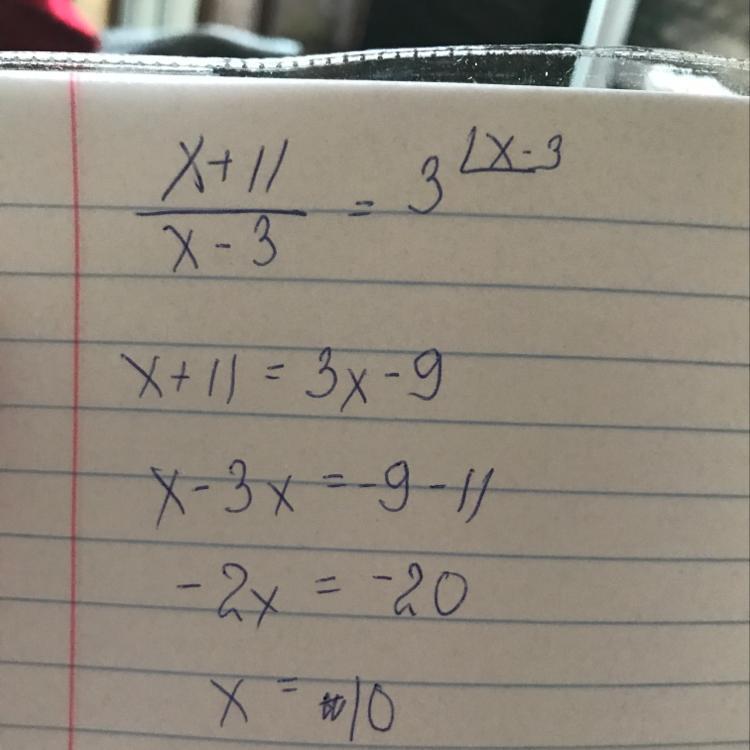 x+11 / x-3 = 3 ⌊x-3
x+11 = 3x-9
x-3x = -9-11
-2x = -20
x = 10